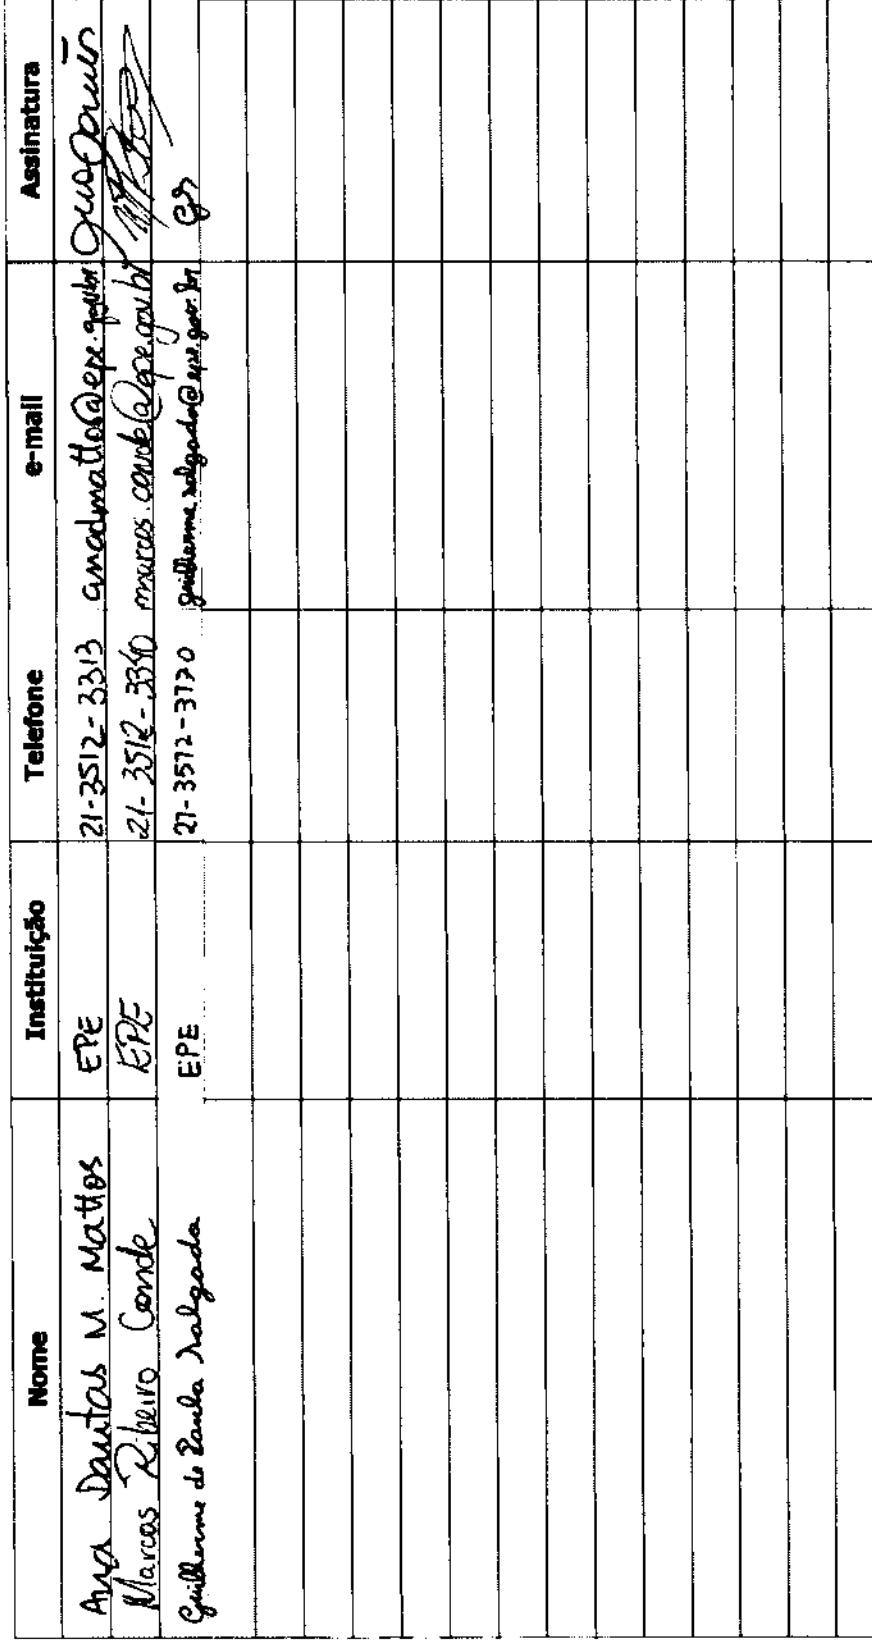 Nome Instituição Telefone e-mail Assinatura
Ana Dantas M. Mattos EPE 21-3512-3313 anadmattos@epe.gov.br
Marcos Ribeiro Conde EPE 21-3512-3340 marcos.conde@epe.gov.br
Guilherme de Paula Salgado EPE 21-3512-3170 guilherme.salgado@epe.gov.br